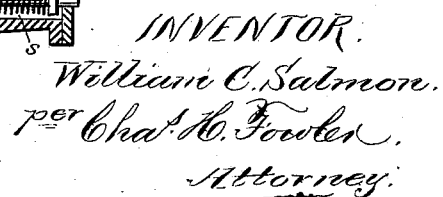 s
INVENTOR.
William C. Salmon.
per Chas. H. Fowler.
Attorney.